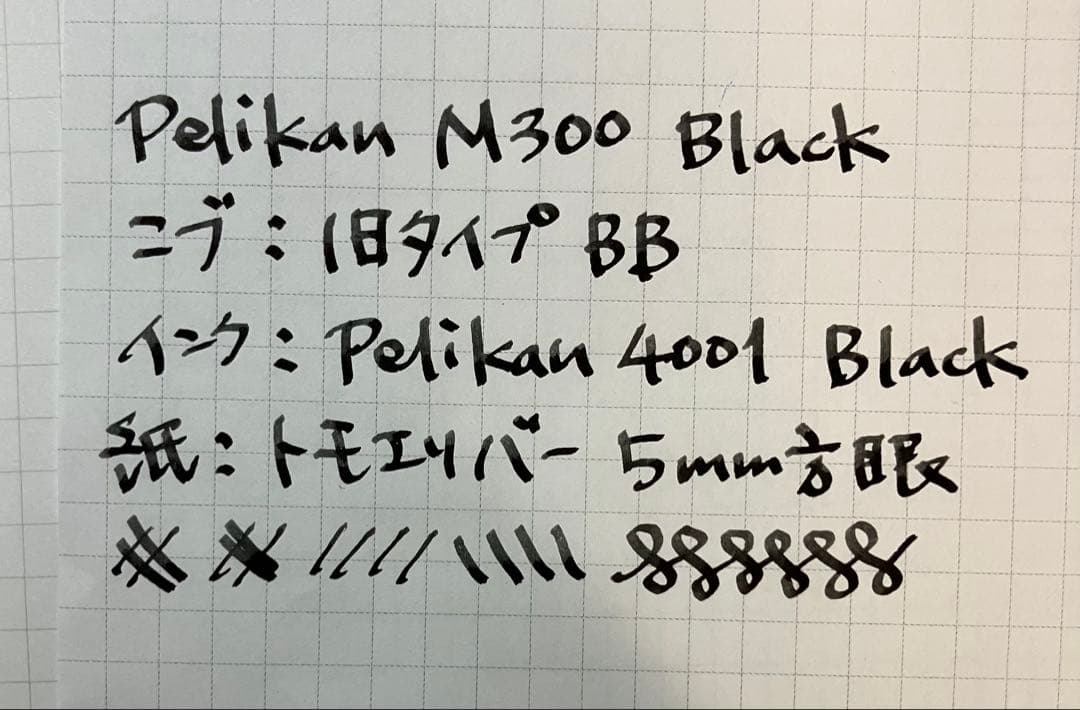 Pelikan M300 Black
ニブ：旧タイプ BB
インク：Pelikan 4001 Black
紙：トモエリバー 5mm方眼